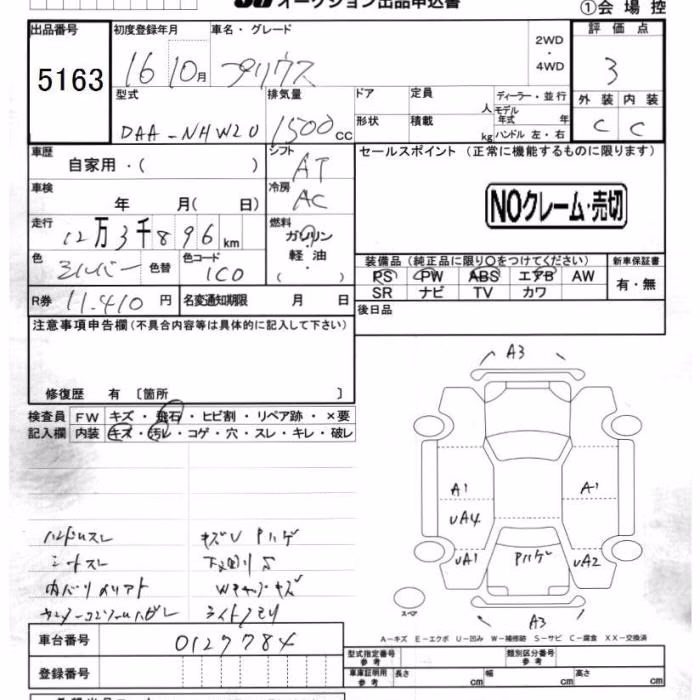 オークション出品申込書
①会場控
出品番号
5163
初度登録年月
16 10月
車名・グレード
プリウス
2WD
・
4WD
評価点
3
型式
DAA-NHW20
排気量
1500cc
ドア
定員
人
ディーラー・並行
モデル年式 年
形状
積載
kg
ハンドル 左・右
外装 内装
C C
車歴
自家用・( )
シフト
AT
セールスポイント (正常に機能するものに限ります)
NOクレーム・売切
車検
年 月( 日)
冷房
AC
走行
12万3千896km
燃料
ガソリン
・
軽油
・
( )
色
シルバー
色替
色コード
1C0
装備品(純正品に限り○をつけてください)
PS PW ABS エアB AW
SR ナビ TV カワ
新車保証書
有・無
R券 11.410円
名変通知期限 月 日
後日品
注意事項申告欄(不具合内容等は具体的に記入して下さい)
修復歴 有 〔箇所 〕
検査員
記入欄
FW キズ・飛石・ヒビ割・リペア跡・×要
内装 キズ・汚レ・コゲ・穴・スレ・キレ・破レ
ハンドルスレ
キズU Pハゲ
シートスレ
ライトクモリ
A3
A1
A1
UA4
UA1
Pハゲ
UA2
A3
スペア
A−キズ E−エクボ U−凹み W−補修跡 S−サビ C−腐食 XX−交換済
車台番号
0127784
登録番号
型式指定番号
参考
類別区分番号
参考
車庫証明用
参考
長さ cm
幅 cm
高さ cm